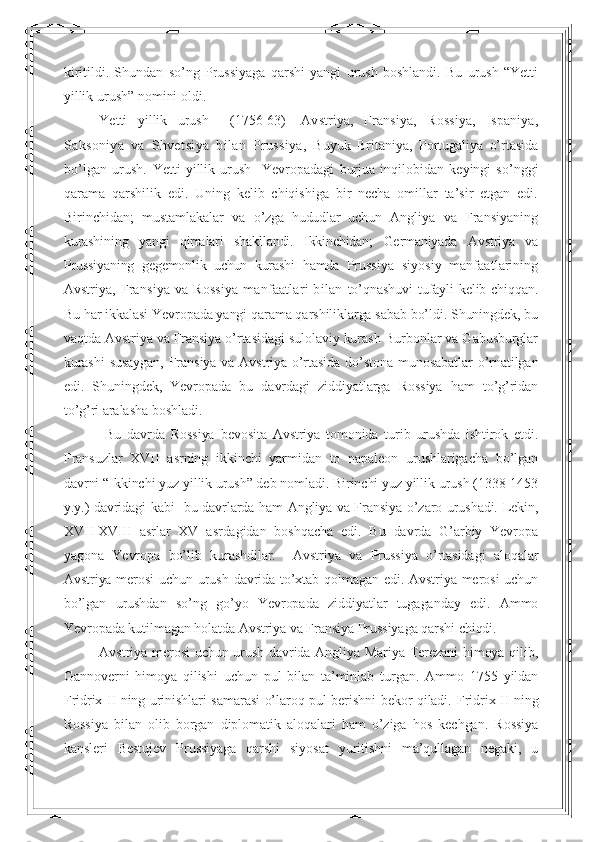 kiritildi. Shundan so’ng Prussiyaga qarshi yangi urush boshlandi. Bu urush “Yetti
yillik urush” nomini oldi.
Yetti yillik urush (1756-63) Avstriya, Fransiya, Rossiya, Ispaniya,
Saksoniya va Shvetsiya bilan Prussiya, Buyuk Britaniya, Portugaliya o’rtasida
bo’lgan urush. Yetti yillik urush Yevropadagi burjua inqilobidan keyingi so’nggi
qarama qarshilik edi. Uning kelib chiqishiga bir necha omillar ta’sir etgan edi.
Birinchidan; mustamlakalar va o’zga hududlar uchun Angliya va Fransiyaning
kurashining yangi qirralari shakllandi. Ikkinchidan; Germaniyada Avstriya va
Prussiyaning gegemonlik uchun kurashi hamda Prussiya siyosiy manfaatlarining
Avstriya, Fransiya va Rossiya manfaatlari bilan to’qnashuvi tufayli kelib chiqqan.
Bu har ikkalasi Yevropada yangi qarama qarshiliklarga sabab bo’ldi. Shuningdek, bu
vaqtda Avstriya va Fransiya o’rtasidagi sulolaviy kurash Burbonlar va Gabusburglar
kurashi susaygan, Fransiya va Avstriya o’rtasida do’stona munosabatlar o’rnatilgan
edi. Shuningdek, Yevropada bu davrdagi ziddiyatlarga Rossiya ham to’g’ridan
to’g’ri aralasha boshladi.
Bu davrda Rossiya bevosita Avstriya tomonida turib urushda ishtirok etdi.
Fransuzlar XVII asrning ikkinchi yarmidan to napaleon urushlarigacha bo’lgan
davrni “Ikkinchi yuz yillik urush” deb nomladi. Birinchi yuz yillik urush (1338-1453
y.y.) davridagi kabi bu davrlarda ham Angliya va Fransiya o’zaro urushadi. Lekin,
XVII-XVIII asrlar XV asrdagidan boshqacha edi. Bu davrda G’arbiy Yevropa
yagona Yevropa bo’lib kurashdilar. Avstriya va Prussiya o’rtasidagi aloqalar
Avstriya merosi uchun urush davrida to’xtab qolmagan edi. Avstriya merosi uchun
bo’lgan urushdan so’ng go’yo Yevropada ziddiyatlar tugaganday edi. Ammo
Yevropada kutilmagan holatda Avstriya va Fransiya Prussiyaga qarshi chiqdi.
Avstriya merosi uchun urush davrida Angliya Mariya Terezani himoya qilib,
Gannoverni himoya qilishi uchun pul bilan ta’minlab turgan. Ammo 1755-yildan
Fridrix II ning urinishlari samarasi o’laroq pul berishni bekor qiladi. Fridrix II ning
Rossiya bilan olib borgan diplomatik aloqalari ham o’ziga hos kechgan. Rossiya
kansleri Bestujev Prussiyaga qarshi siyosat yuritishni ma’qullagan negaki, u